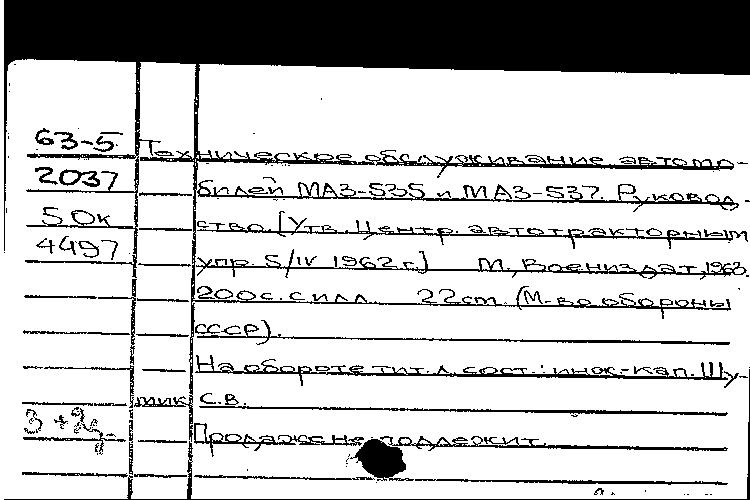 63-5 Техническое обслуживание автомо-
2037 билей МАЗ-535 и МАЗ-537. Руковод-
50к ство [Утв. Центр. автотракторным
4497 упр. 5/IV 1962 г.] М., Воениздат, 1963.
200 с. с илл. 22 см. (М-во обороны
СССР).
На обороте тит. л. сост.: инж-кап. Шу-
мик С.В.
3 + 2д.
Продаже не подлежит.